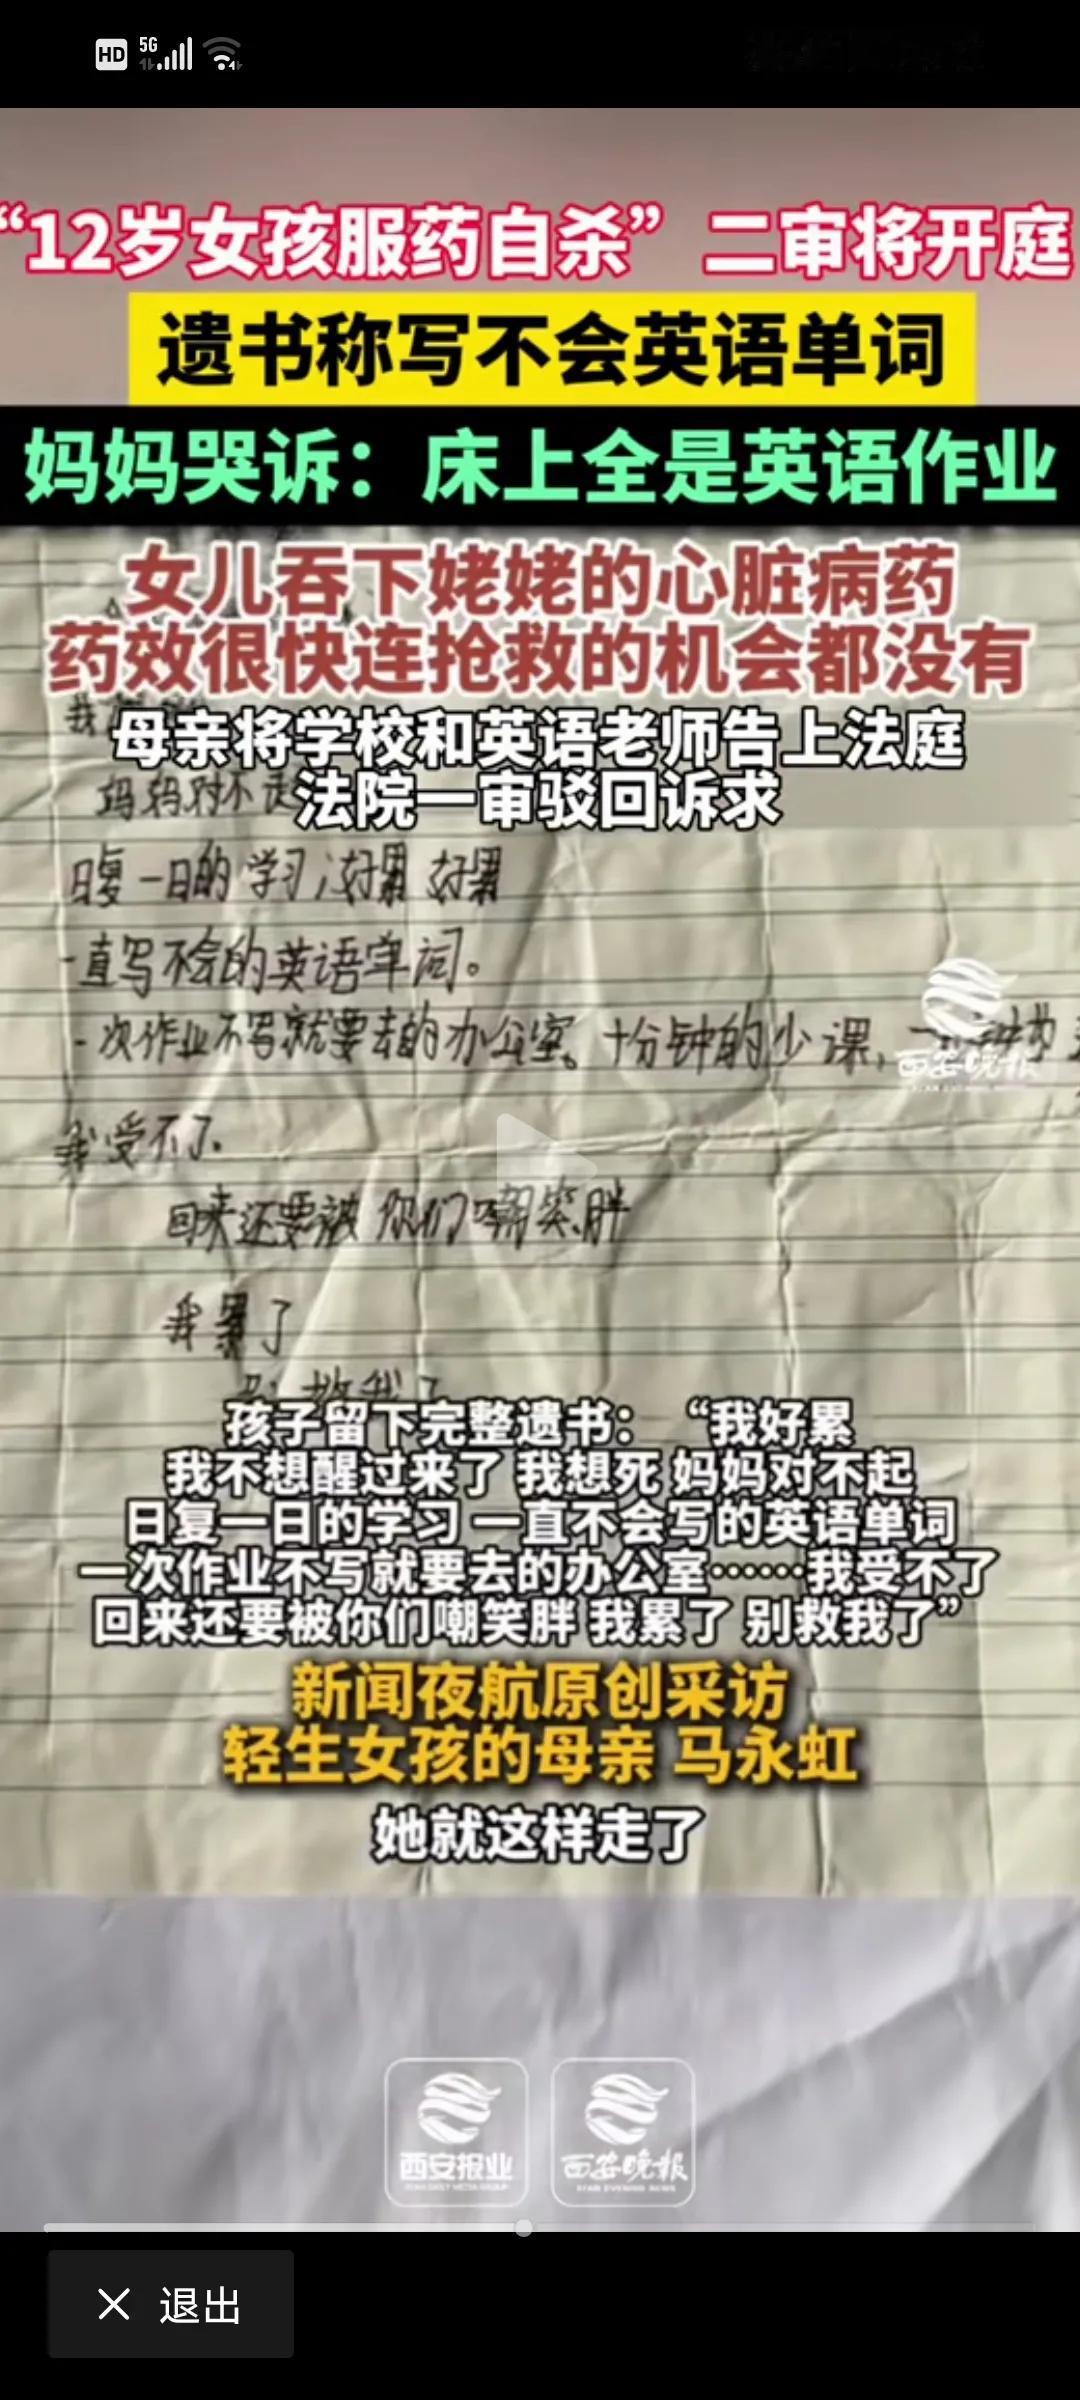 HD 5G
“12岁女孩服药自杀”二审将开庭
遗书称写不会英语单词
妈妈哭诉：床上全是英语作业
女儿吞下姥姥的心脏病药
药效很快连抢救的机会都没有
母亲将学校和英语老师告上法庭
法院一审驳回诉求
妈妈对不起
日复一日的学习，好累 好累
一直写不会的英语单词。
一次作业不写就要去的办公室。十分钟的少课，
西安晚报
XI'AN EVENING NEWS
我受不了.
回来还要被你们嘲笑胖
我累了
孩子留下完整遗书：“我好累
我不想醒过来了 我想死 妈妈对不起
日复一日的学习 一直不会写的英语单词
一次作业不写就要去的办公室……我受不了
回来还要被你们嘲笑胖 我累了 别救我了”
新闻夜航原创采访
轻生女孩的母亲 马永虹
她就这样走了
西安报业 西安晚报
XI'AN EVENING NEWS
× 退出